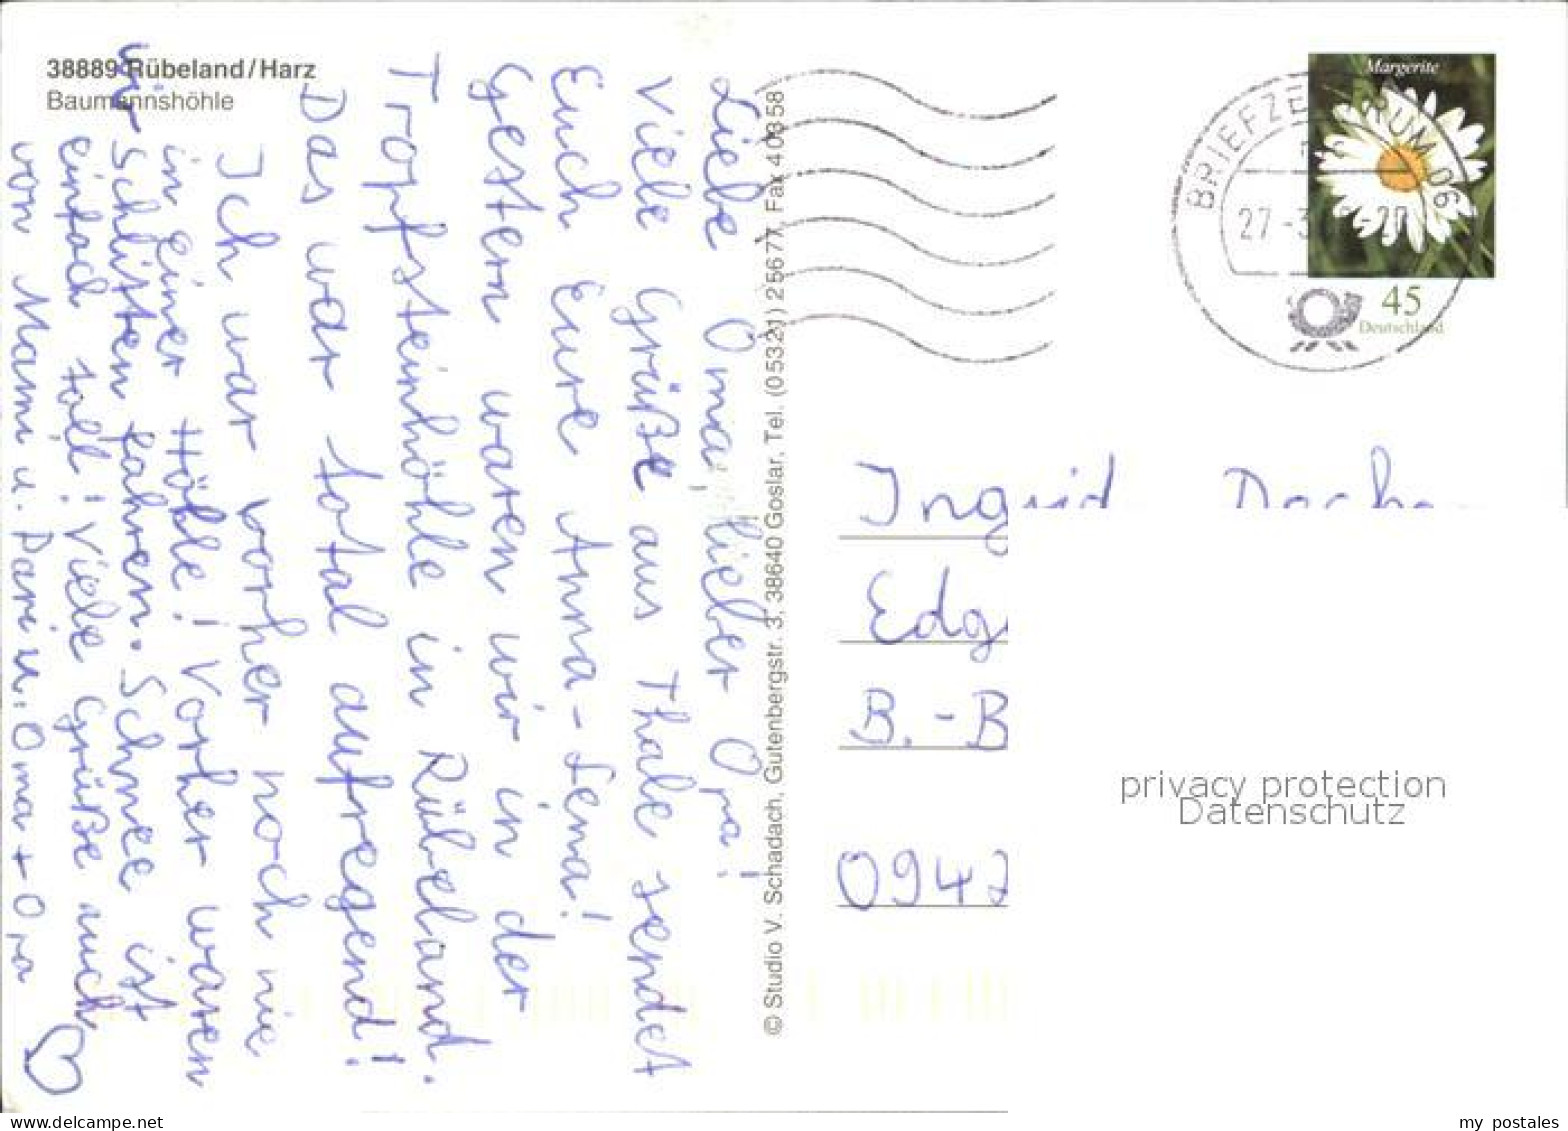 38889 Rübeland/Harz
Baumannshöhle
Liebe Oma, lieber Opa!
Viele Grüße aus Thale sendet
Euch Eure Anna-Lena!
Gestern waren wir in der
Tropfsteinhöhle in Rübeland.
Das war total aufregend!
Ich war vorher noch nie
in einer Höhle! Vorher waren
wir Schlitten fahren. Schnee ist
einfach toll! Viele Grüße auch
von Mami u. Papi u. Oma + Opa
© Studio V. Schadach, Gutenbergstr. 3, 38640 Goslar, Tel. (05321) 25677, Fax 40358
Margerite
45
Deutschland
BRIEFZENTRUM 06
27 -3
Ingrid
Edg
B.-B
privacy protection
Datenschutz
0947
www.delcampe.net
my_postales